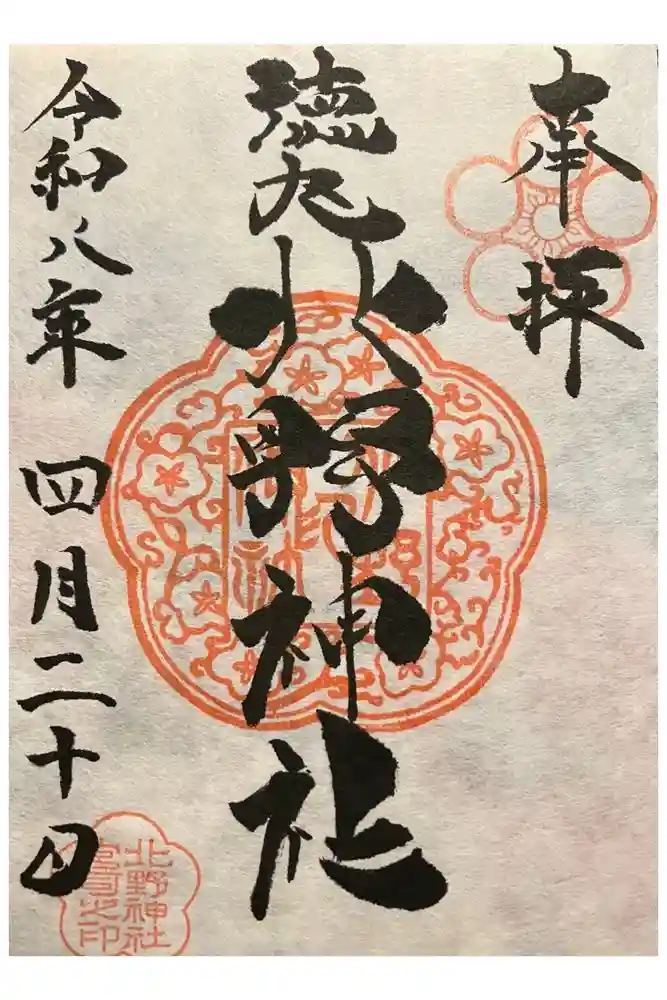 奉拝
徳丸北野神社
令和八年 四月二十日
北野神社
宮司之印